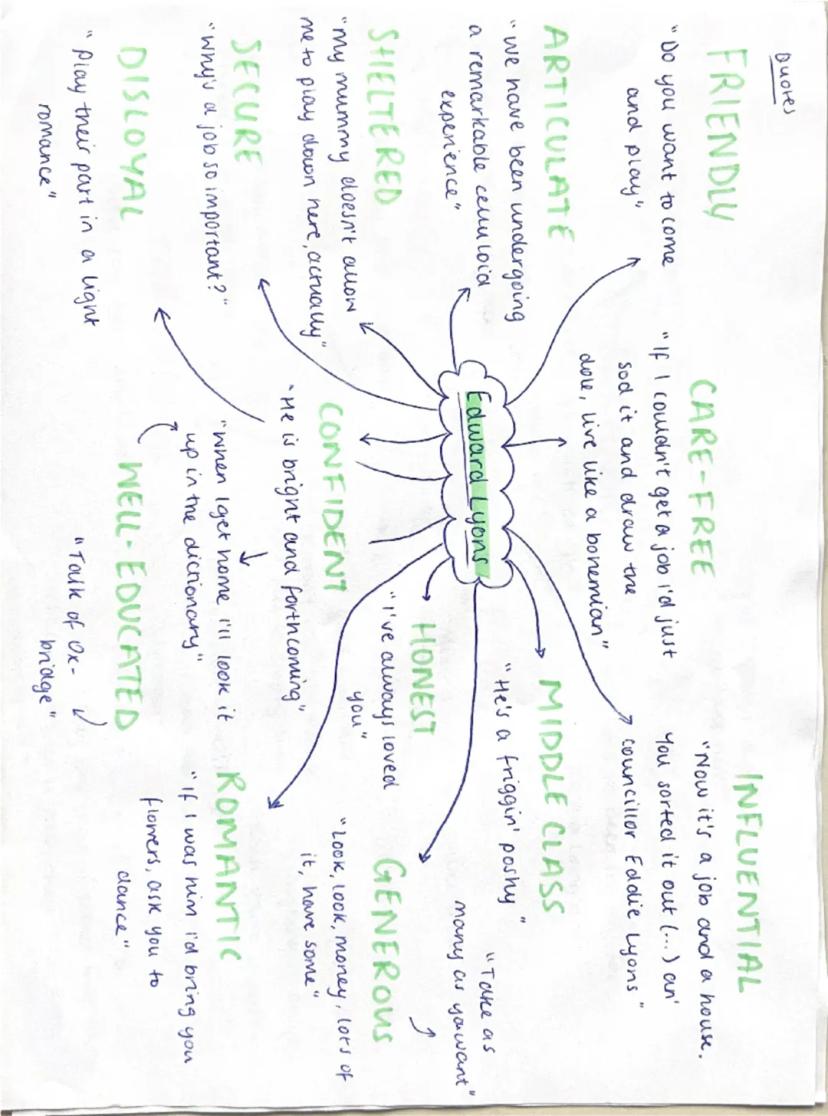 Quotes
FRIENDLY
"Do you want to come
and play"
CARE-FREE
"If I couldn't get a job I'd just
sod it and draw the
dole, live like a bohemian"
INFLUENTIAL
"Now it's a job and a house.
You sorted it out (...) an'
councillor Eddie Lyons"
ARTICULATE
"we have been undergoing
a remarkable celluloid
experience"
MIDDLE CLASS
"He's a friggin' poshy"
Edward Lyons
SHELTERED
"My mummy doesn't allow
me to play down here, actually"
HONEST
"I've always loved
you"
GENEROUS
"Take as
many as ya want"
"Look, look, money, lots of
it, have some"
SECURE
"Why's a job so important?"
CONFIDENT
"He is bright and forthcoming"
DISLOYAL
"Play their part in a light
romance"
WELL-EDUCATED
"When I get home I'll look it
up in the dictionary"
"Talk of Ox-
bridge"
ROMANTIC
"If I was him I'd bring you
flowers, ask you to
dance"